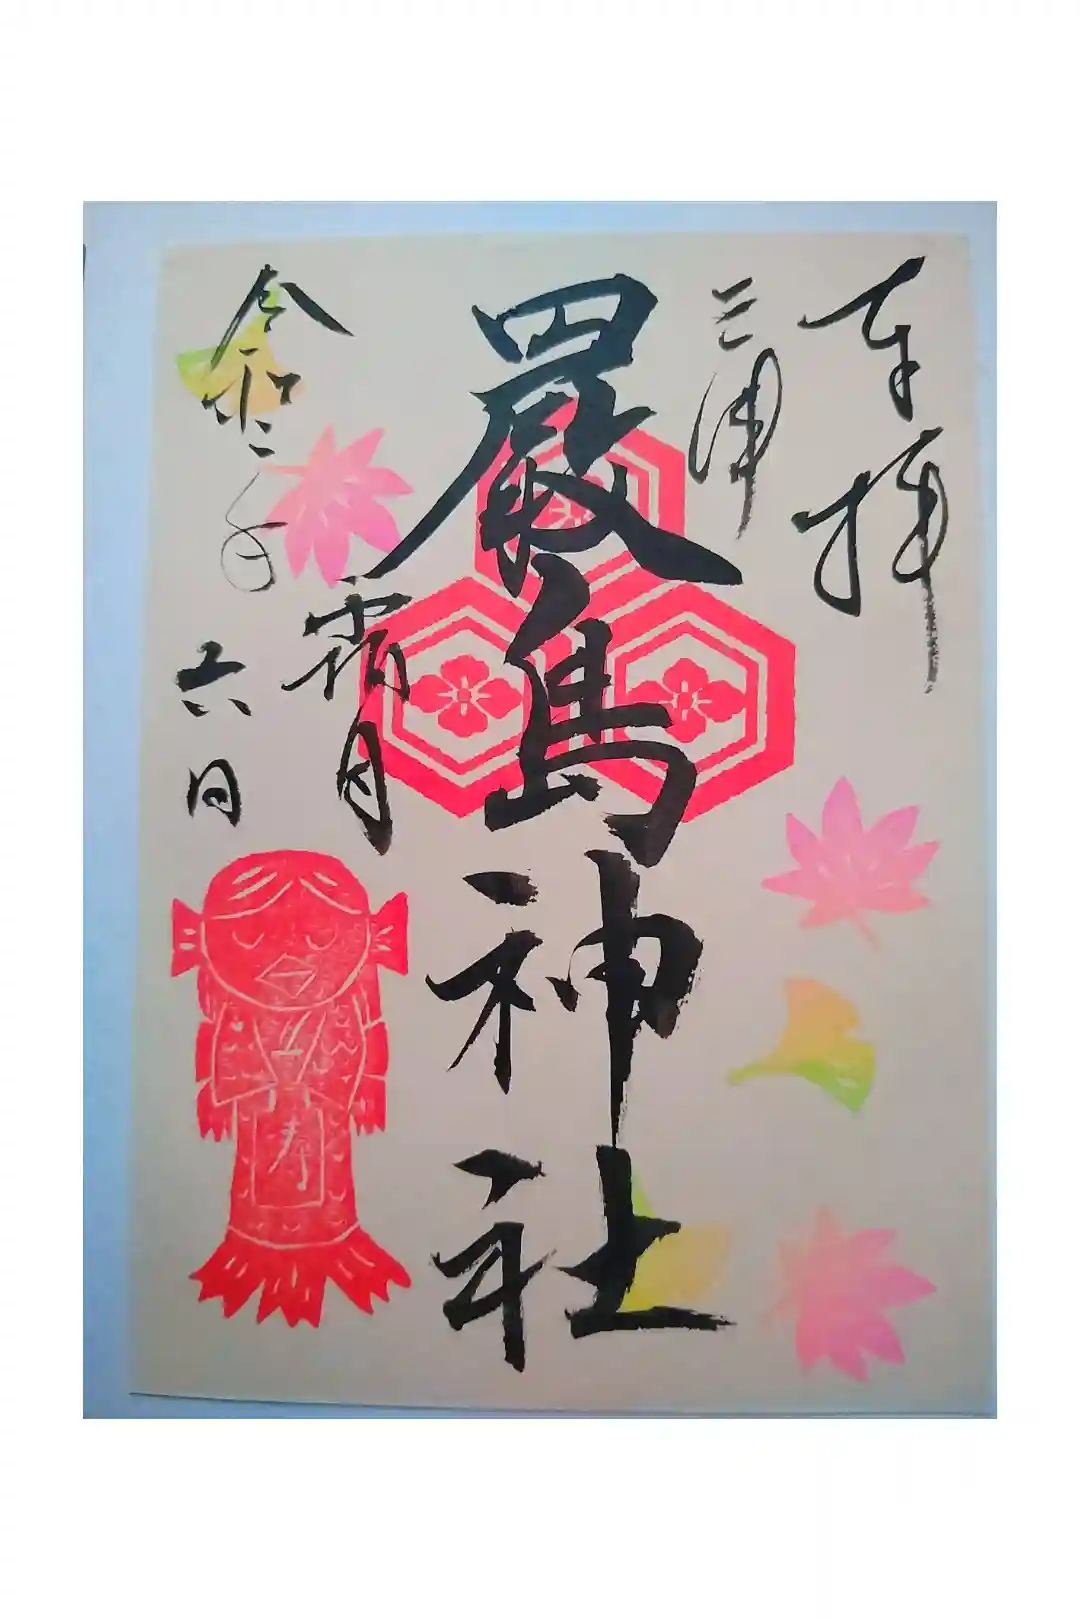 奉拝
三浦
嚴島神社
令和二年
霜月
六日
寿